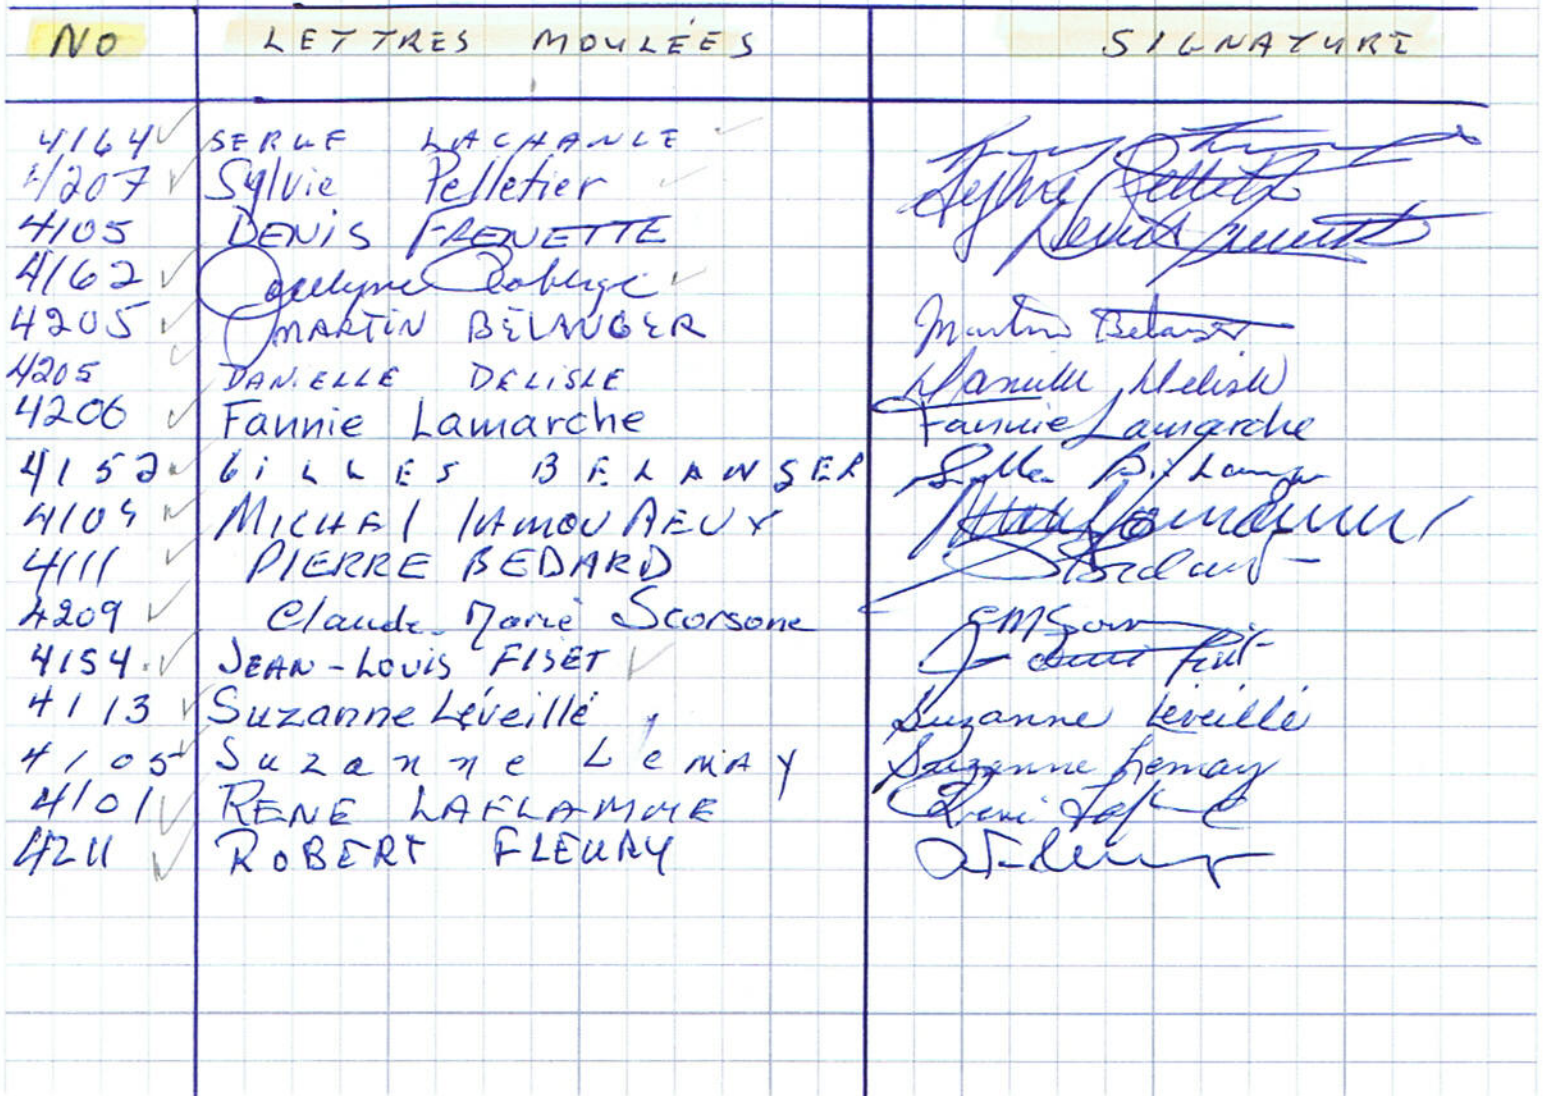 NO LETTRES MOULÉES SIGNATURE
4164 SERGE LACHANCE
4207 Sylvie Pelletier Sylvie Pelletier
4105 DENIS FRENETTE Denis Frenette
4162 Jocelyne Roberge
4205 MARTIN BÉLANGER Martin Bélanger
4205 DANIELLE DELISLE Danielle Delisle
4206 Fannie Lamarche Fannie Lamarche
4152 GILLES BELANGER
4109 MICHEL LAMOUREUX
4111 PIERRE BEDARD Bedard
4209 Claude-Marie Scorsone
4154 JEAN-LOUIS FISET
4113 Suzanne Léveillé Suzanne Léveillé
4105 Suzanne LEMAY Suzanne Lemay
4101 RENE LAFLAMME
4211 ROBERT FLEURY